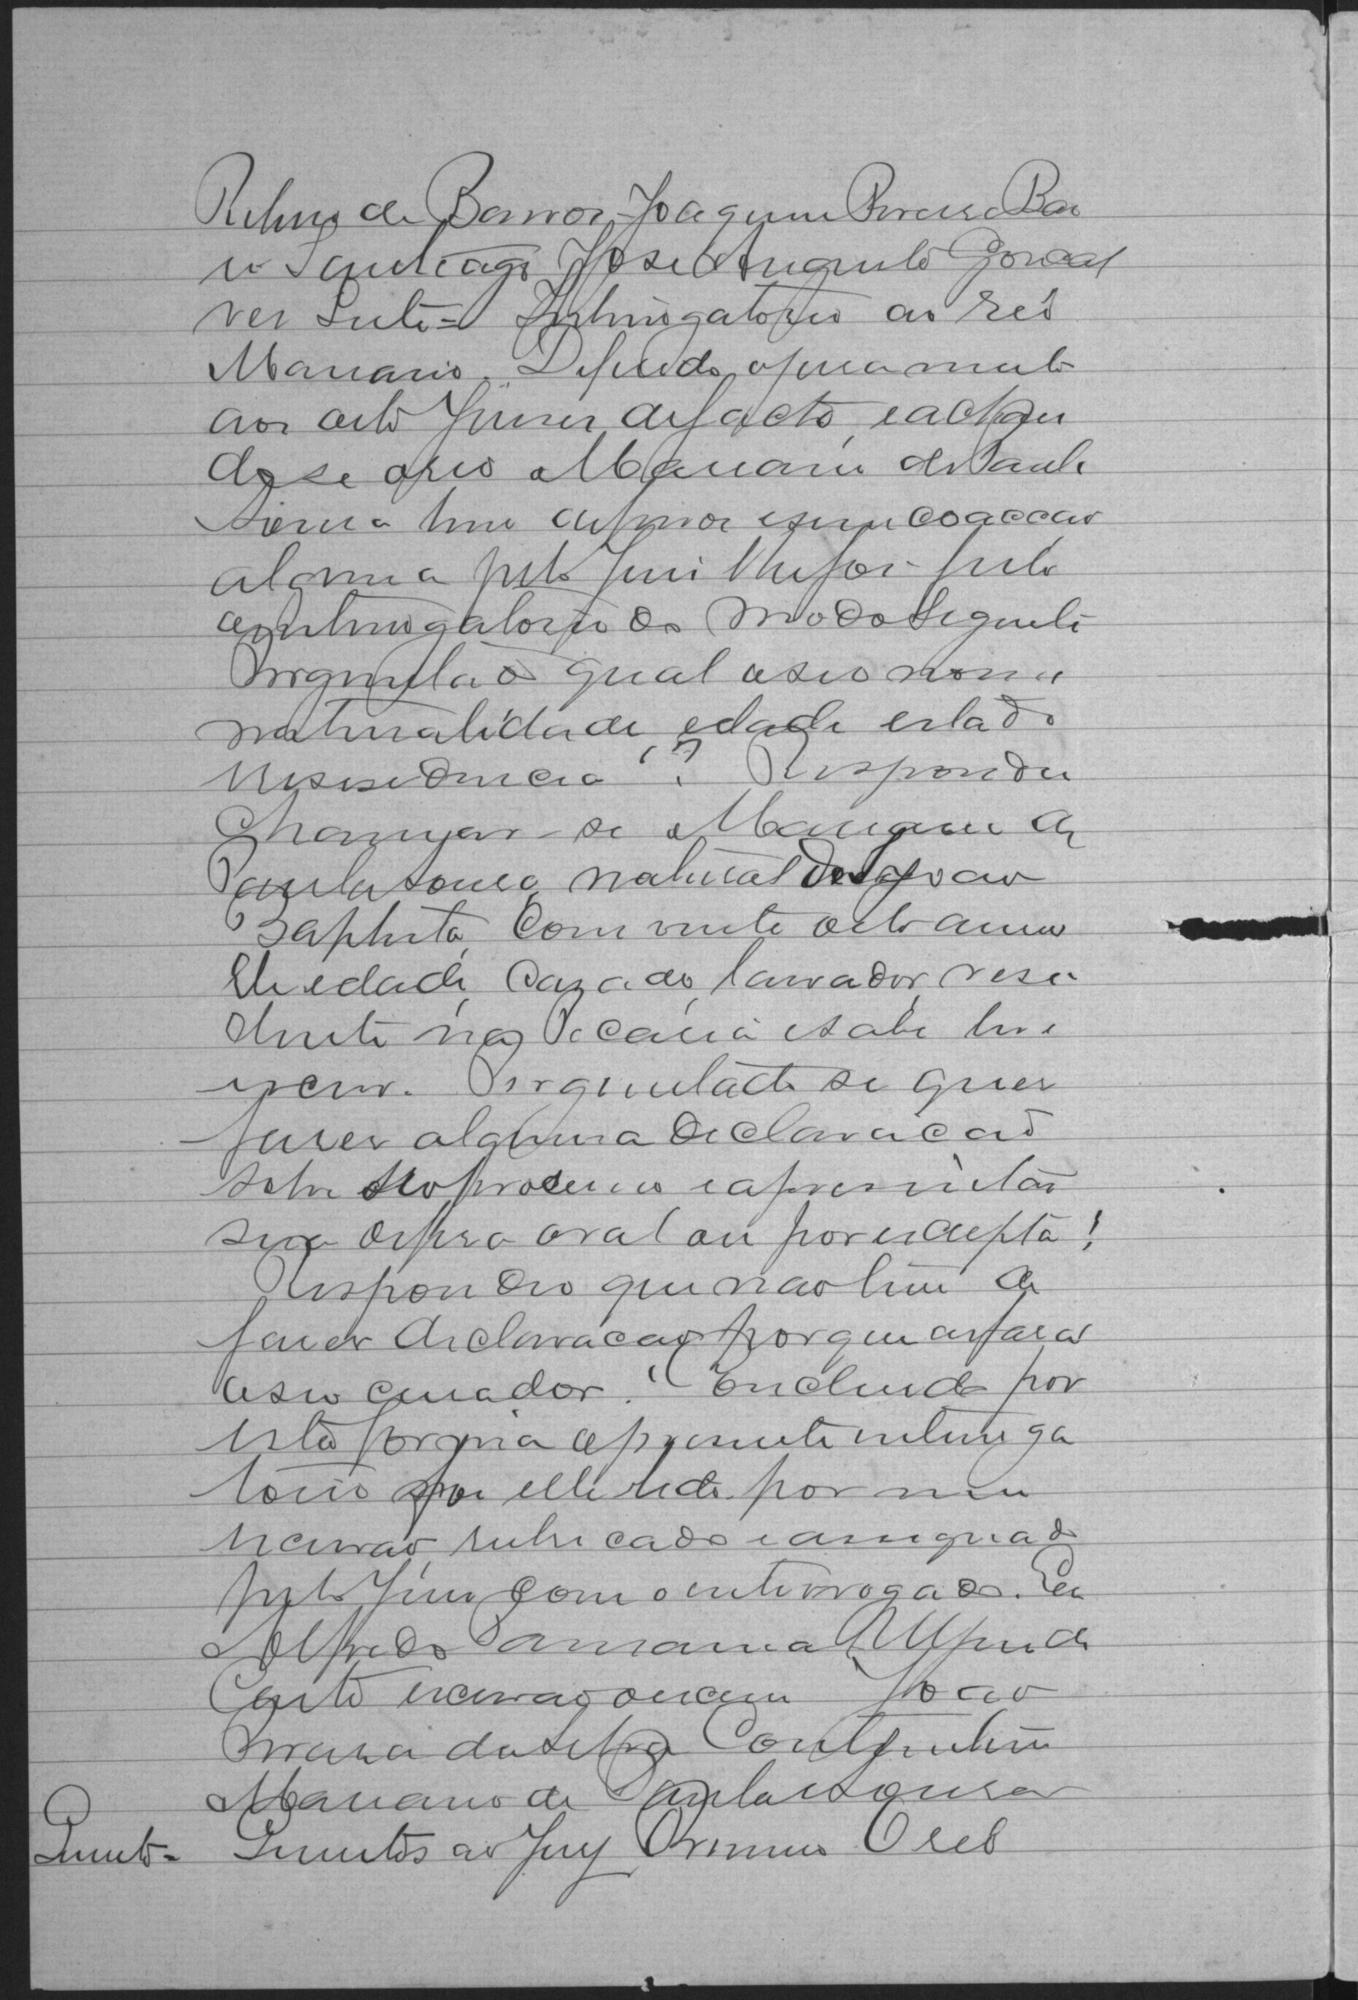 de Barros Joaquim Pereira Bar
Santiago José Augusto Goncal
ves Leite = Interrogatorio ao reó
Macario. Deferido o juramento
aos oito Juises de facto, e achan
do se o reo Macario de Paula
Sousa livre de ferros e sem coaccao
alguma pelo Juis lhe foi feito
o interrogatorio do modo seguinte
Perguntado qual o seo nome
naturalidade edade estado
residencia? Respondeu
chamar-se Macario de
Paula Sousa natural de Sao Joao
Baptista, com vinte oito annos
de edade, casado, lavrador, resi
dente na e sabe ler e
escrever. Perguntado se quer
faser alguma declaracao
sobre seo processo e apresentar
sua defesa oral ou por escripta!
Respondeo que nao tem de
faser declaracao porque as fara
o seo curador. Concluido por
esta forma o presente interroga
torio foi elle lido por mim
escrivao, rubricado e assignado
pelo Juis com o interrogado. Eu
Alfredo
escrivao o escrevi Joao
Pereira da Silva
Macario de Paula e Sousa
Quesitos = Quesitos ao Jury Primeiro O reó